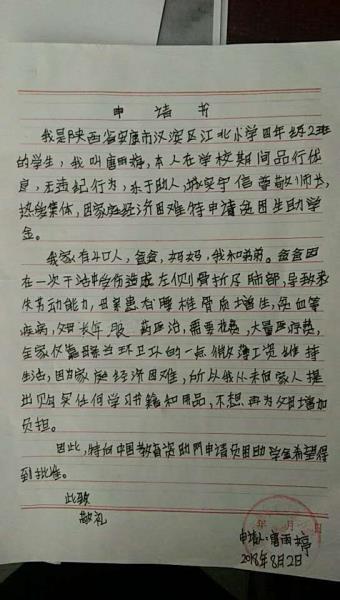 申请书
我是陕西省安康市汉滨区江北小学四年级2班
的学生，我叫唐雨婷，本人在学校期间品行优
良，无违纪行为，乐于助人，诚实守信尊敬师长，
热爱集体，因家庭经济困难特申请贫困生助学
金。
我家有4口人，爸爸，妈妈，我和弟弟。爸爸因
在一次干活中受伤造成左侧骨折及肺部，导致丧
失劳动能力，母亲患有椎骨质增生，贫血等
疾病，长年服药医治，需要花费，大量医疗费，
全家仅靠当环卫工的一点微薄工资维持
生活，因为家庭经济困难，所以我从未向家人提
出购买任何学习书籍和用品，不想再为增加
负担。
因此，特向中国教育资助网申请贫困助学金希望得
到批准。
此致
敬礼
年 月 日
申请人：唐雨婷
2018年8月2日